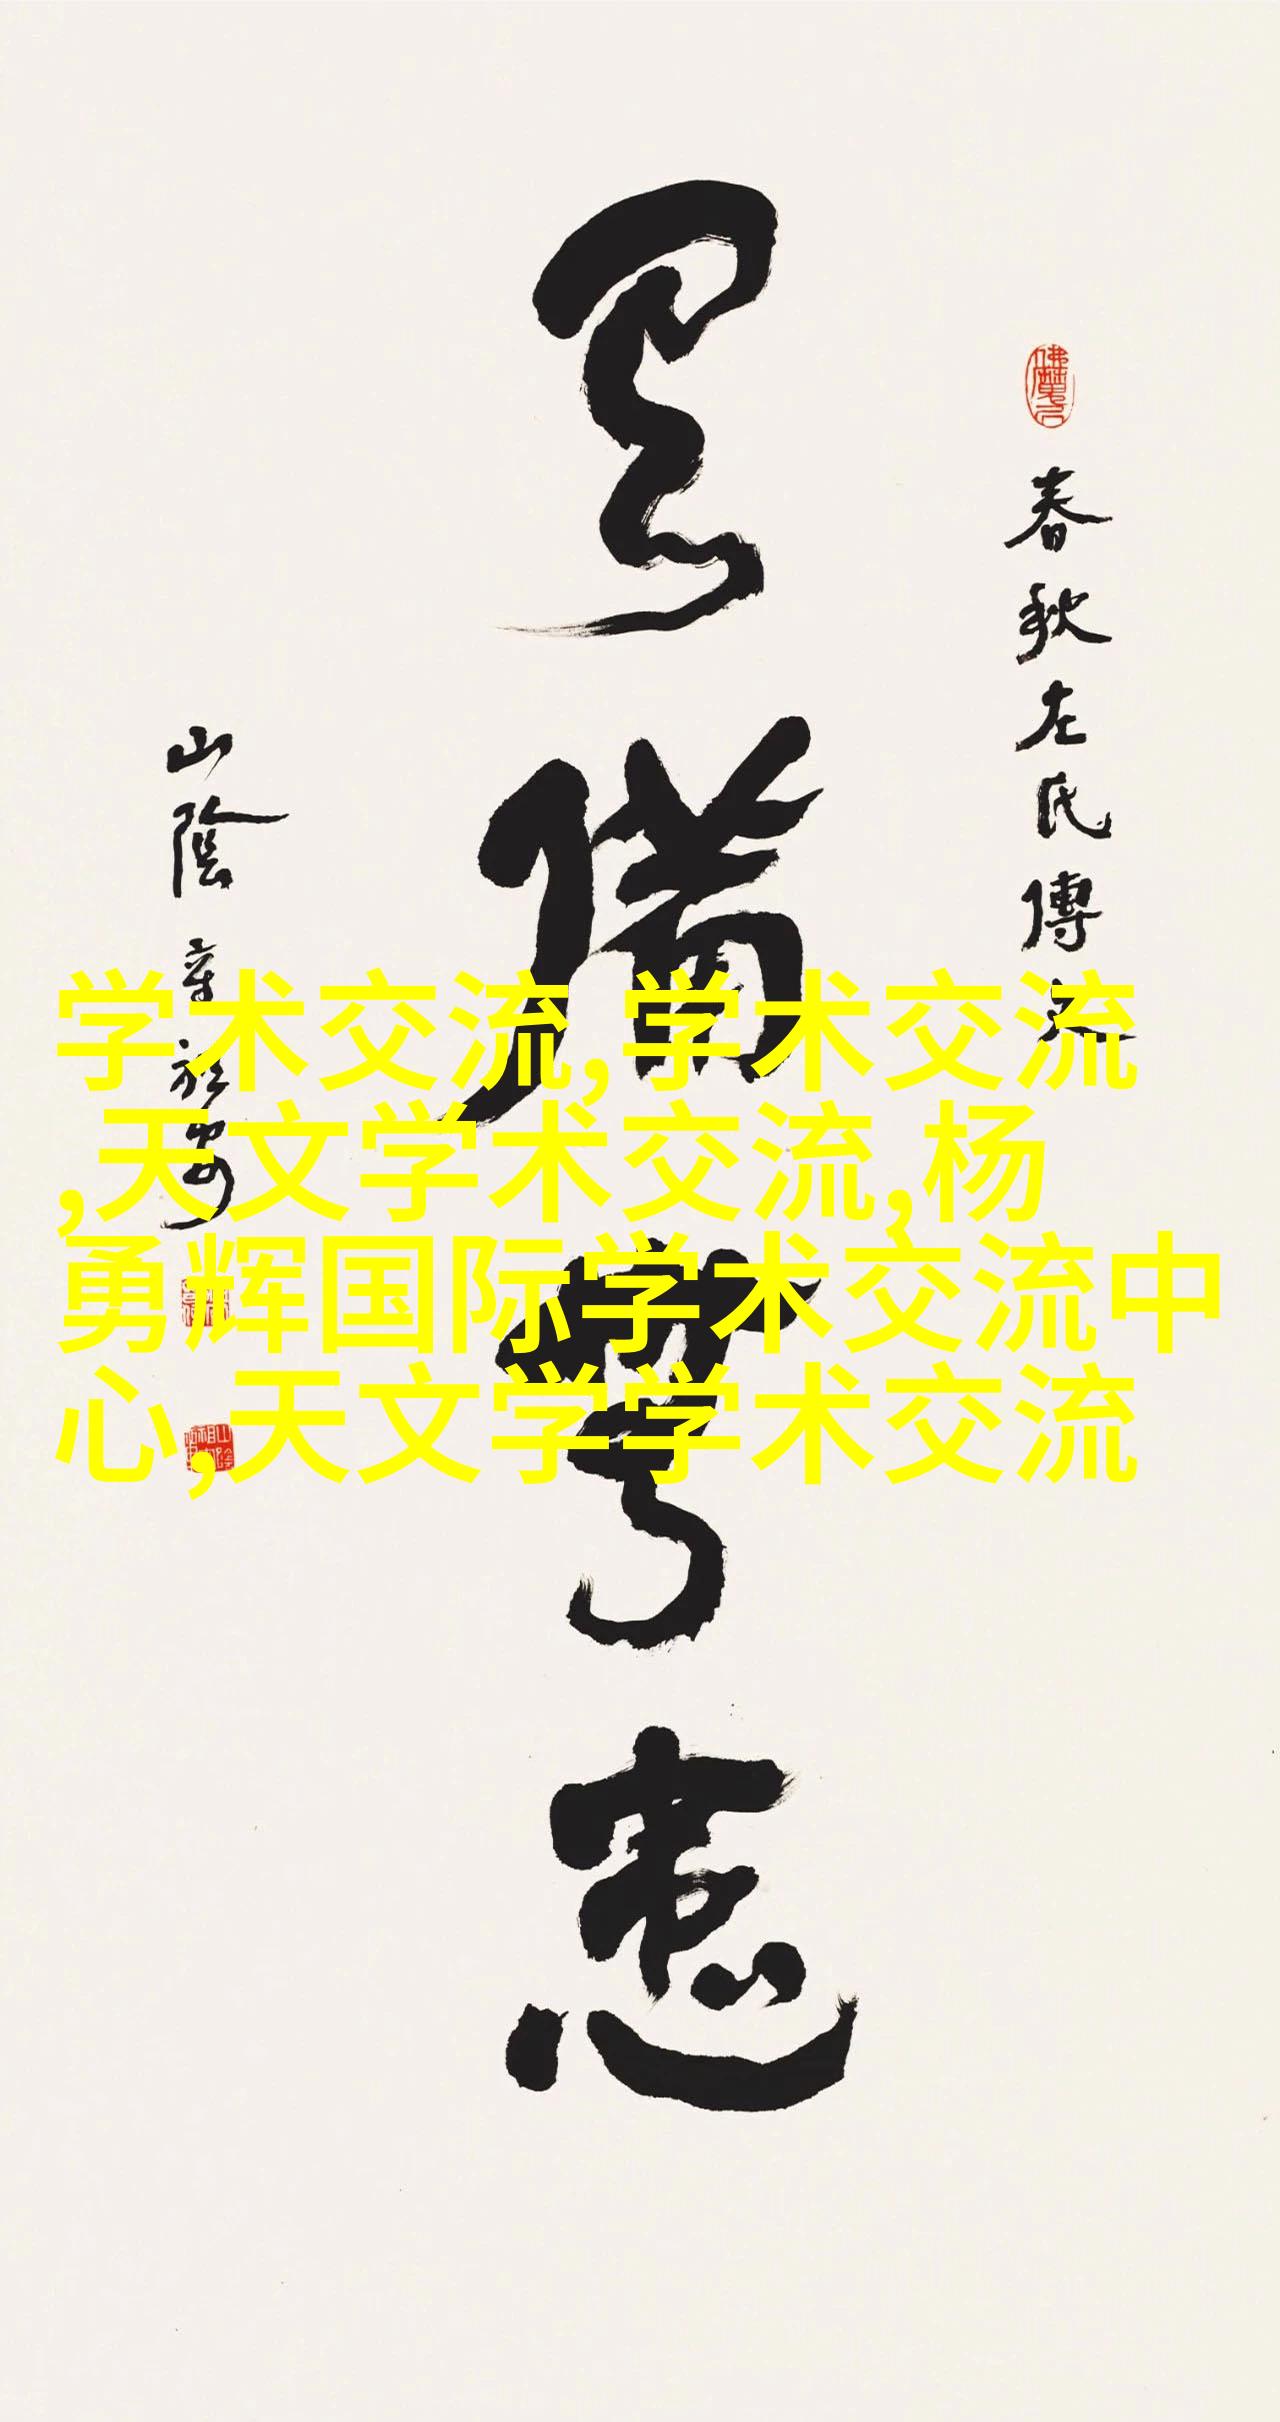 春秋左氏傳
有備無患
山陰
学术交流,学术交流
,天文学术交流,杨
勇辉国际学术交流中
心,天文学学术交流